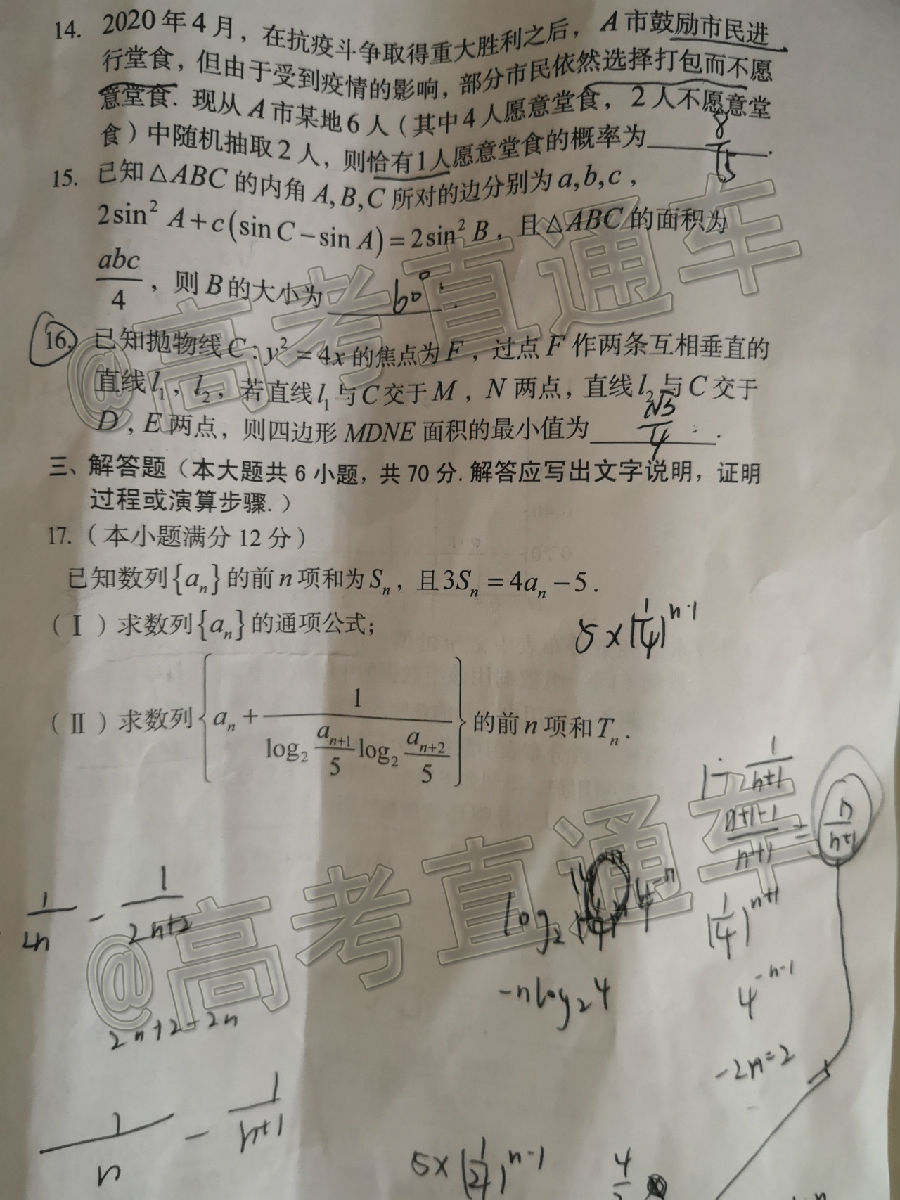 14. 2020年4月，在抗疫斗争取得重大胜利之后，A市鼓励市民进
行堂食，但由于受到疫情的影响，部分市民依然选择打包而不愿
意堂食. 现从A市某地6人（其中4人愿意堂食，2人不愿意堂
食）中随机抽取2人，则恰有1人愿意堂食的概率为 8/15 .
15. 已知△ABC的内角A,B,C所对的边分别为a,b,c，
2sin² A+c(sin C−sin A)=2sin² B，且△ABC的面积为
abc/4，则B的大小为 60° .
16. 已知抛物线C:y²=4x的焦点为F，过点F作两条互相垂直的
直线l₁，l₂，若直线l₁与C交于M，N两点，直线l₂与C交于
D，E两点，则四边形MDNE面积的最小值为 .
三、解答题（本大题共6小题，共70分.解答应写出文字说明，证明
过程或演算步骤.）
17.（本小题满分12分）
已知数列{aₙ}的前n项和为Sₙ，且3Sₙ=4aₙ−5.
（Ⅰ）求数列{aₙ}的通项公式；
5×(1/4)ⁿ⁻¹
（Ⅱ）求数列{aₙ+1/(log₂ aₙ₊₁/5 log₂ aₙ₊₂/5)}的前n项和Tₙ.
1−1/(n+1)
(n+1-1)/(n+1) = n/(n+1)
1/2n − 1/(2n+2)
log₂
4⁻ⁿ
(1/4)ⁿ⁺¹
-nlog₂4
4⁻ⁿ⁻¹
2n+2-2n
-2n=2
1/n − 1/(n+1)
@高考直通车
@高考直通车